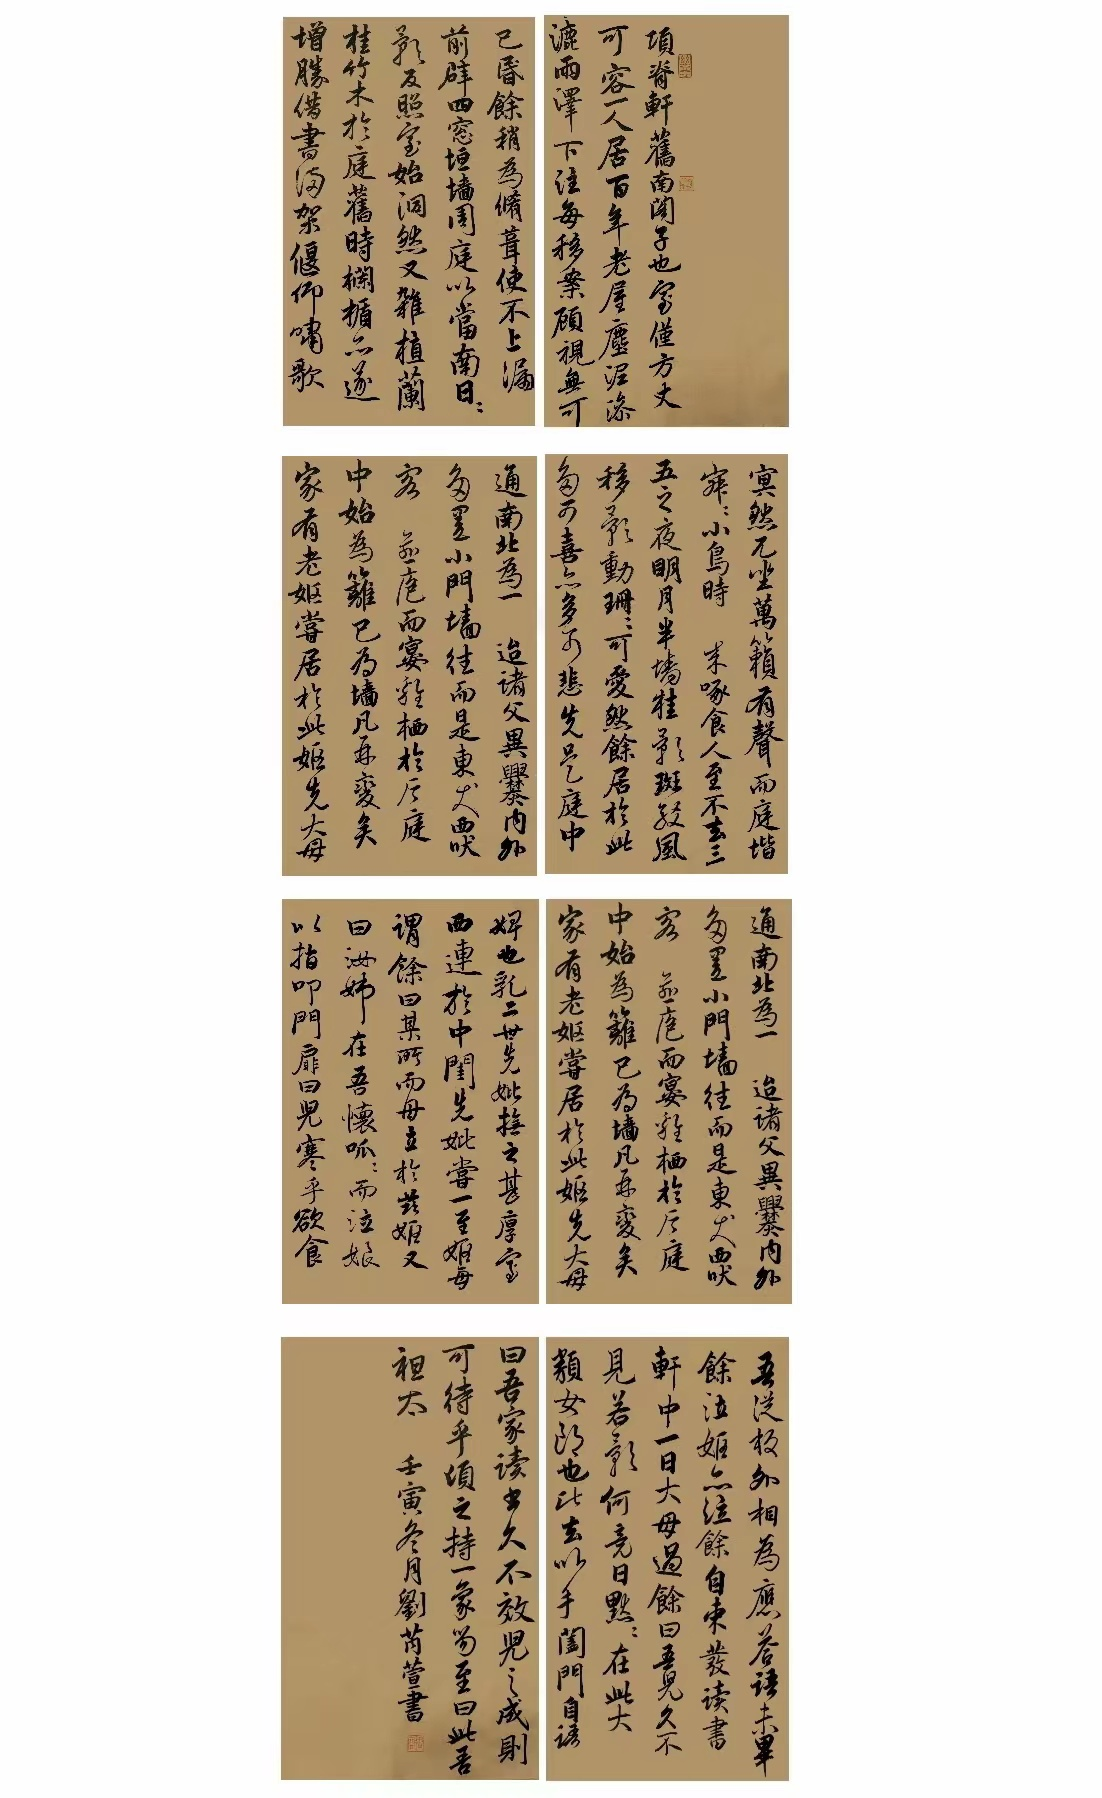 項脊軒舊南閣子也室僅方丈
可容一人居百年老屋塵泥滲
漉雨澤下注每移案顧視無可
已昏餘稍為脩葺使不上漏
前闢四窓垣墻周庭以當南日〻
影反照室始洞然又雜植蘭
桂竹木於庭舊時欄楯亦遂
增勝借書滿架偃仰嘯歌
冥然兀坐萬籟有聲而庭堦
寂〻小鳥時 来啄食人至不去三
五之夜明月半墻桂影斑駁風
移影動珊〻可愛然餘居於此
多可喜亦多可悲先是庭中
通南北為一 迨諸父異爨内外
多置小門墻往而是東犬西吠
客 逾庖而宴雞栖於廳庭
中始為籬已為墻凡再變矣
家有老嫗嘗居於此嫗先大母
通南北為一 迨諸父異爨内外
多置小門墻往而是東犬西吠
客 逾庖而宴雞栖於廳庭
中始為籬已為墻凡再變矣
家有老嫗嘗居於此嫗先大母
婢也乳二世先妣撫之甚厚室
西連於中閨先妣嘗一至嫗每
謂餘曰某所而母立於茲嫗又
曰汝姊在吾懷呱〻而泣娘
以指叩門扉曰兒寒乎欲食
吾從板外相為應答語未畢
餘泣嫗亦泣餘自束髮读書
軒中一日大母過餘曰吾兒久不
見若影何竟日默〻在此大
類女郎也比去以手闔門自語
曰吾家读书久不效兒之成則
可待乎頃之持一象笏至曰此吾
祖太 壬寅冬月劉芮萱書